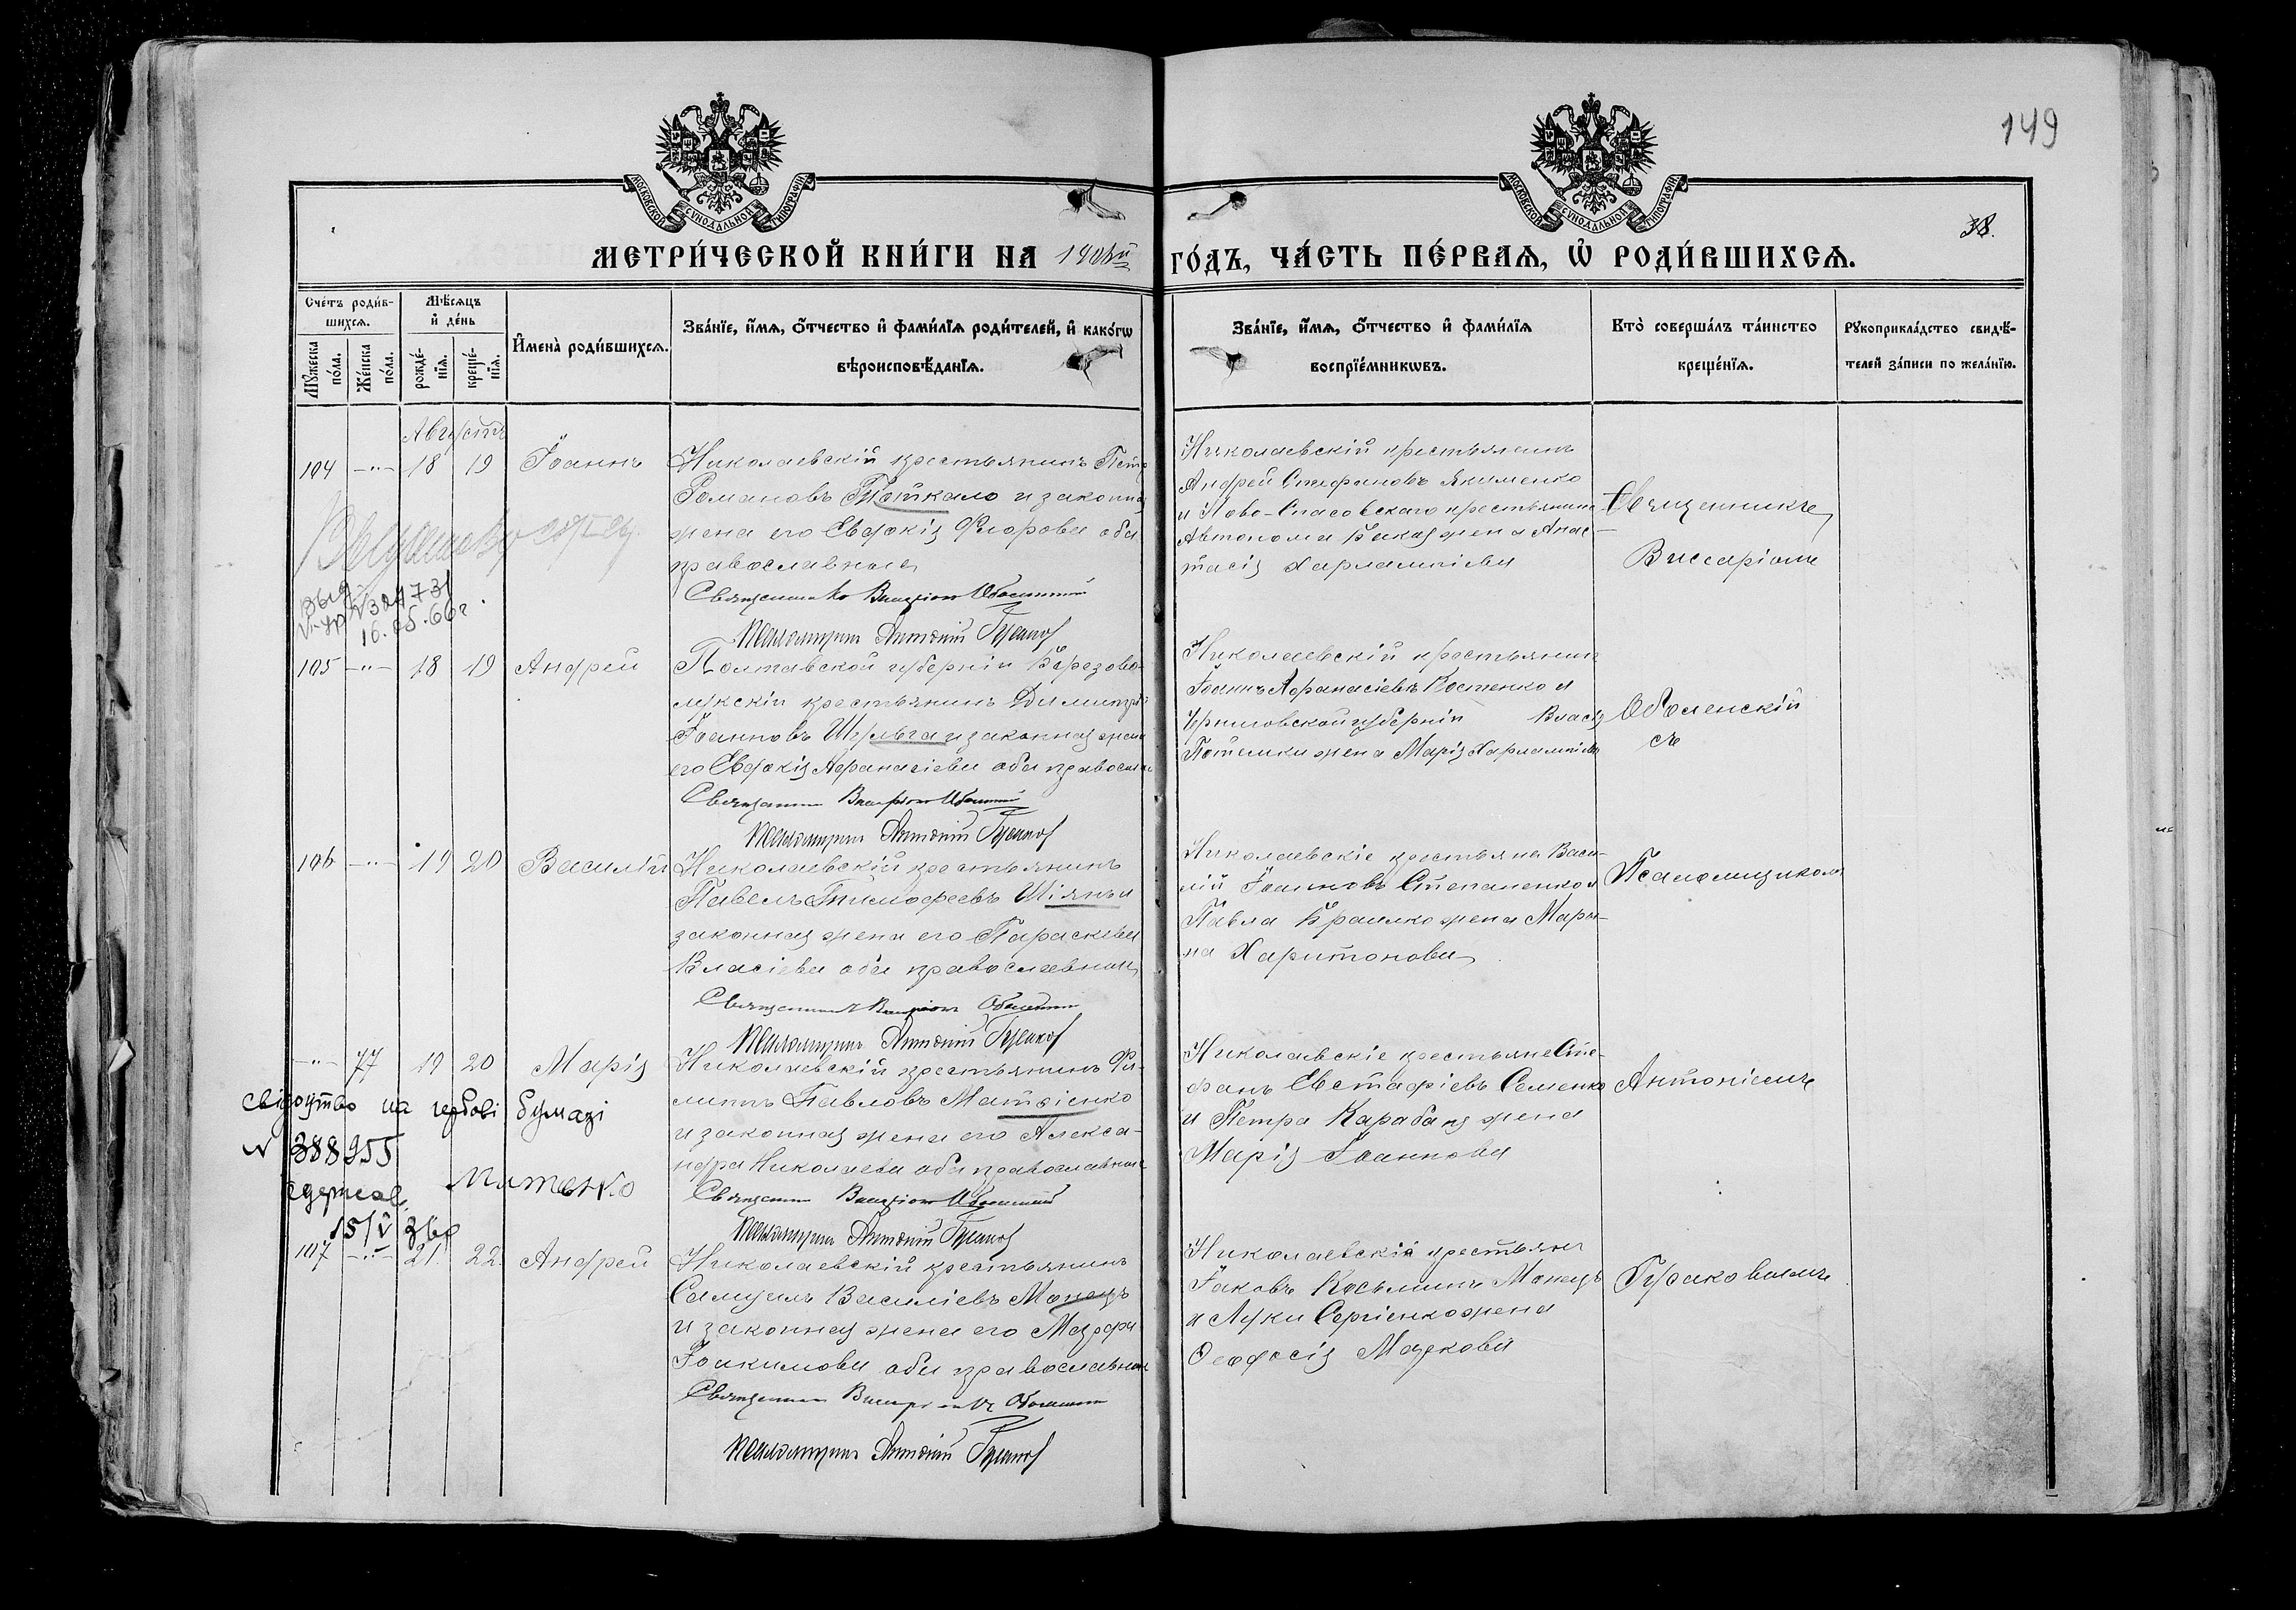 149
38.
МОСКОВСКОЙ СѴНОДАЛЬНОЙ ТИПОГРАФІИ
МОСКОВСКОЙ СѴНОДАЛЬНОЙ ТИПОГРАФІИ
МЕТРИ́ЧЕСКОЙ КНИ́ГИ НА
ГО́ДЪ, ЧА́СТЬ ПЕ́РВАѦ, Ѡ҆ РОДИ́ВШИХСѦ.
Сче́тъ роди́в-
шихсѧ.
Мꙋ́жеска по́ла.
Же́нска по́ла.
Мѣ́сѧцъ
и҆ де́нь
рожде́-нїѧ.
креще́-нїѧ.
И҆мена̀ роди́вшихсѧ.
Зва́нїе, и҆́мѧ, ѻ҆́тчество и҆ фами́лїѧ роди́телей, и҆ како́гѡ
вѣроисповѣ́данїѧ.
Зва́нїе, и҆́мѧ, ѻ҆́тчество и҆ фами́лїѧ
воспрїе́мникѡвъ.
Кто̀ соверша́лъ та́инство
креще́нїѧ.
Рꙋкоприкла́дство свидѣ́-
телей за́писи по жела́нїю.
Августъ
104 -"- 18 19 Іоаннъ
Николаевскій крестьянинъ Петръ
Романовъ и законная
жена его Евдокія Флорова оба
православные
Священникъ Виссаріонъ Оболенскій
Псаломщикъ Антоній Гусаковъ
Николаевскій крестьянинъ
Андрей Стефановъ Якименко
и Ново-Спасовскаго крестьянина
Автонома жена Анас-
тасія Харлампіева
Священникъ
Виссаріонъ
16.05.66г.
105 -"- 18 19 Андрей
Полтавской губерніи Березово-
лукскій крестьянинъ Димитрій
Іоанновъ Шульга и законная жена
его Евдокія Афанасіева оба православные
Священникъ Виссаріонъ Оболенскій
Псаломщикъ Антоній Гусаковъ
Николаевскій крестьянинъ
Іоаннъ Афанасіевъ Костенко и
Черниговской губерніи Власія
жена Марія Харлампіева
Оболенскій
съ
106 -"- 19 20 Василій
Николаевскій крестьянинъ
Павелъ Тимофеевъ Шіянъ и
законная жена его Параскева
Власіева оба православные
Священникъ Виссаріонъ Оболенскій
Псаломщикъ Антоній Гусаковъ
Николаевскіе крестьяне Васи-
лій Іоанновъ Степаненко и
Павла Браилко жена Мари-
на Харитонова
Псаломщикомъ
-"- 77 19 20 Марія
Николаевскій крестьянинъ Фи-
липпъ Павловъ Матвіенко
и законная жена его Алекса-
ндра Николаева оба православные
Священникъ Виссаріонъ Оболенскій
Псаломщикъ Антоній Гусаковъ
Николаевскіе крестьяне Сте-
фанъ Евстафіевъ Семенко
и Петра Карабаня жена
Марія Іоаннова
Антоніемъ
свідоцтво на гербові бумазі
N 388955
одержав
15/V 36р
107 -"- 21 22 Андрей
Николаевскій крестьянинъ
Самуилъ Василіевъ Монецъ
и законная жена его Марфа
Іоакимова оба православные
Священникъ Виссаріонъ Оболенскій
Псаломщикъ Антоній Гусаковъ
Николаевскій крестьян
Іаковъ Косьминъ Монецъ
и Луки Сергіенко жена
Феодосія Маркова
Гусаковымъ